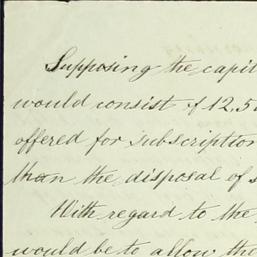 Supposing the capit
would consist of 12,5
offered for subscription
than the disposal of s
With regard to the
would be to allow the